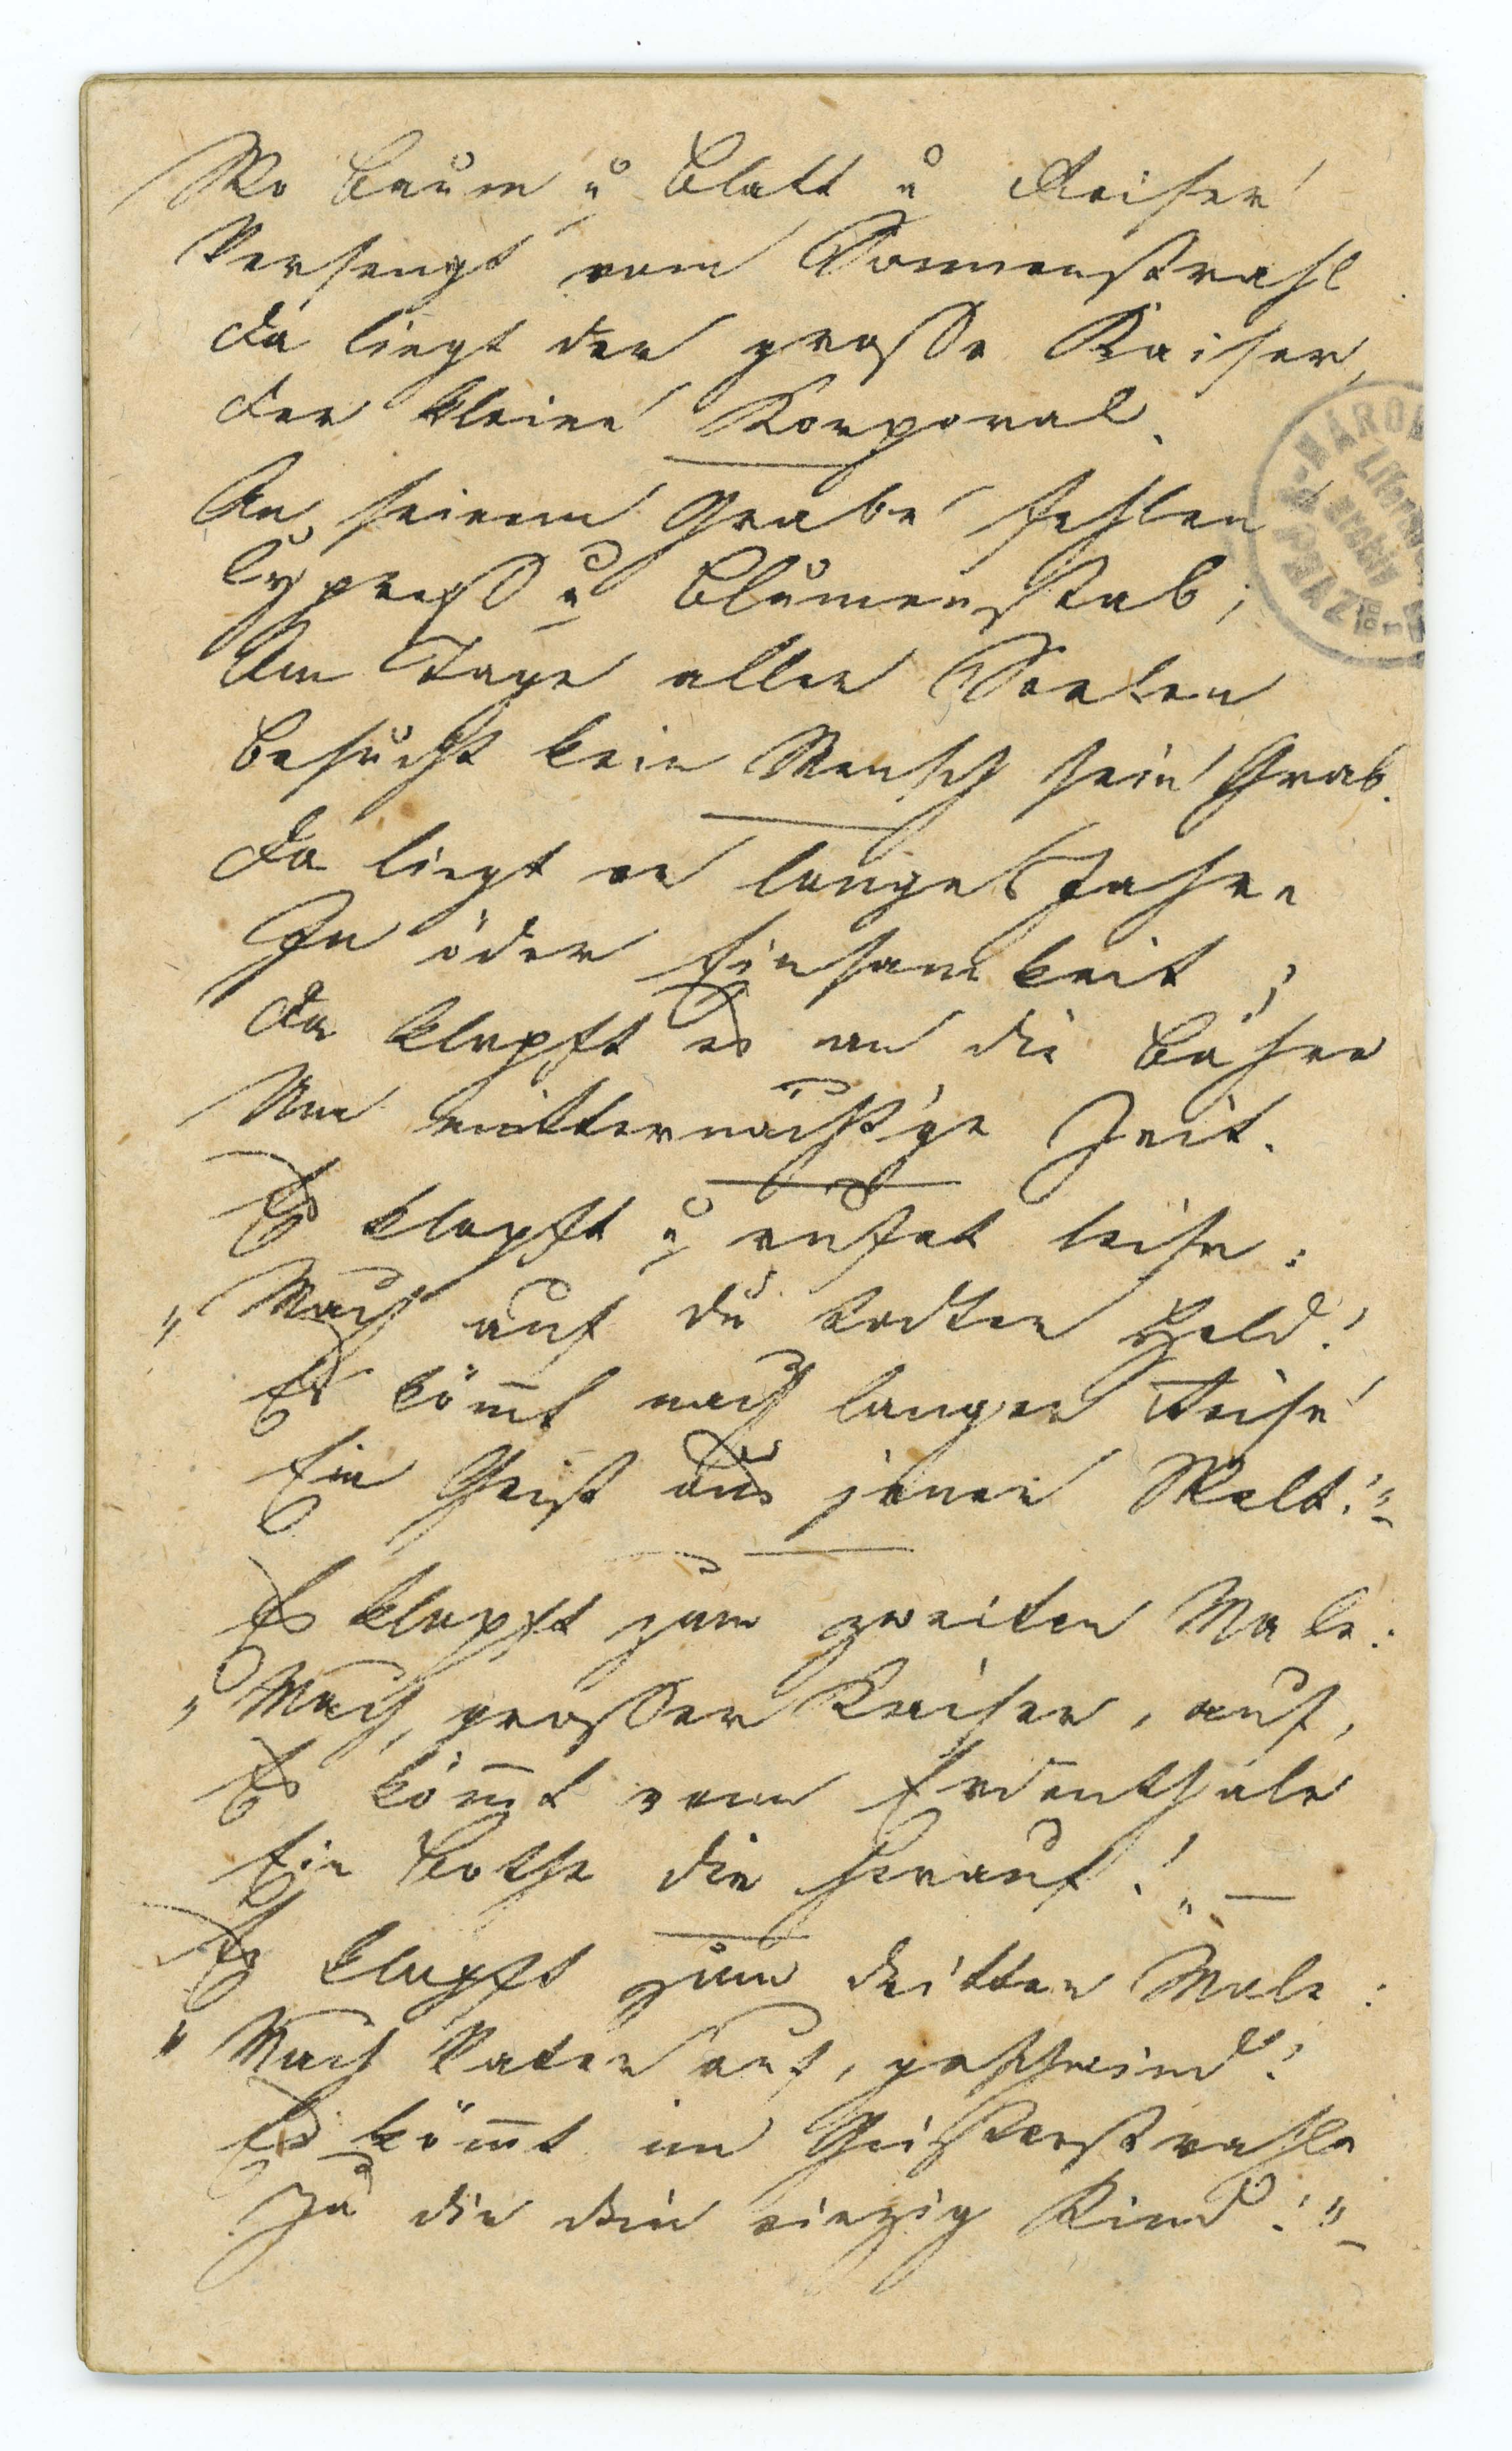 Wo Baum u Blatt u Reiser
Versengt vom Sonnenstrahl
Da liegt der grosse Kaiser,
Der kleine Korporal.
An seinem Grabe fehlen
Cypress u Blumenstab;
Am Tage aller Seelen
Besucht kein Mensch sein Grab.
Da liegt er lange Jahre
In öder Einsamkeit;
Da klopft es an die Bahre
Um mitternächt'ge Zeit.
Es klopft u rufet leise:
"Mach auf du todter Held!
Es kömt nach langer Reise
Ein Geist aus jener Welt!"
Es klopft zum zweiten Male:
"Mach, grosser Kaiser, auf,
Es kömt vom Erdenthale
Ein Bothe dir herauf!" —
Es klopft zum dritten Male:
"Mach Vater auf, geschwind!
Es kömt im Geisterstrahle
Zu dir dein einzig Kind!"
NÁROD
Literární
archiv
PRAZE